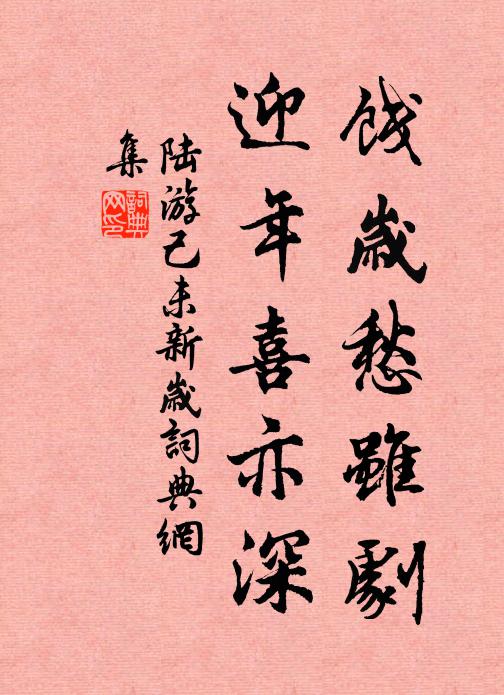 餞歲愁雖劇
迎年喜亦深
陸游己未新歲詞典網
集
詞典
网印